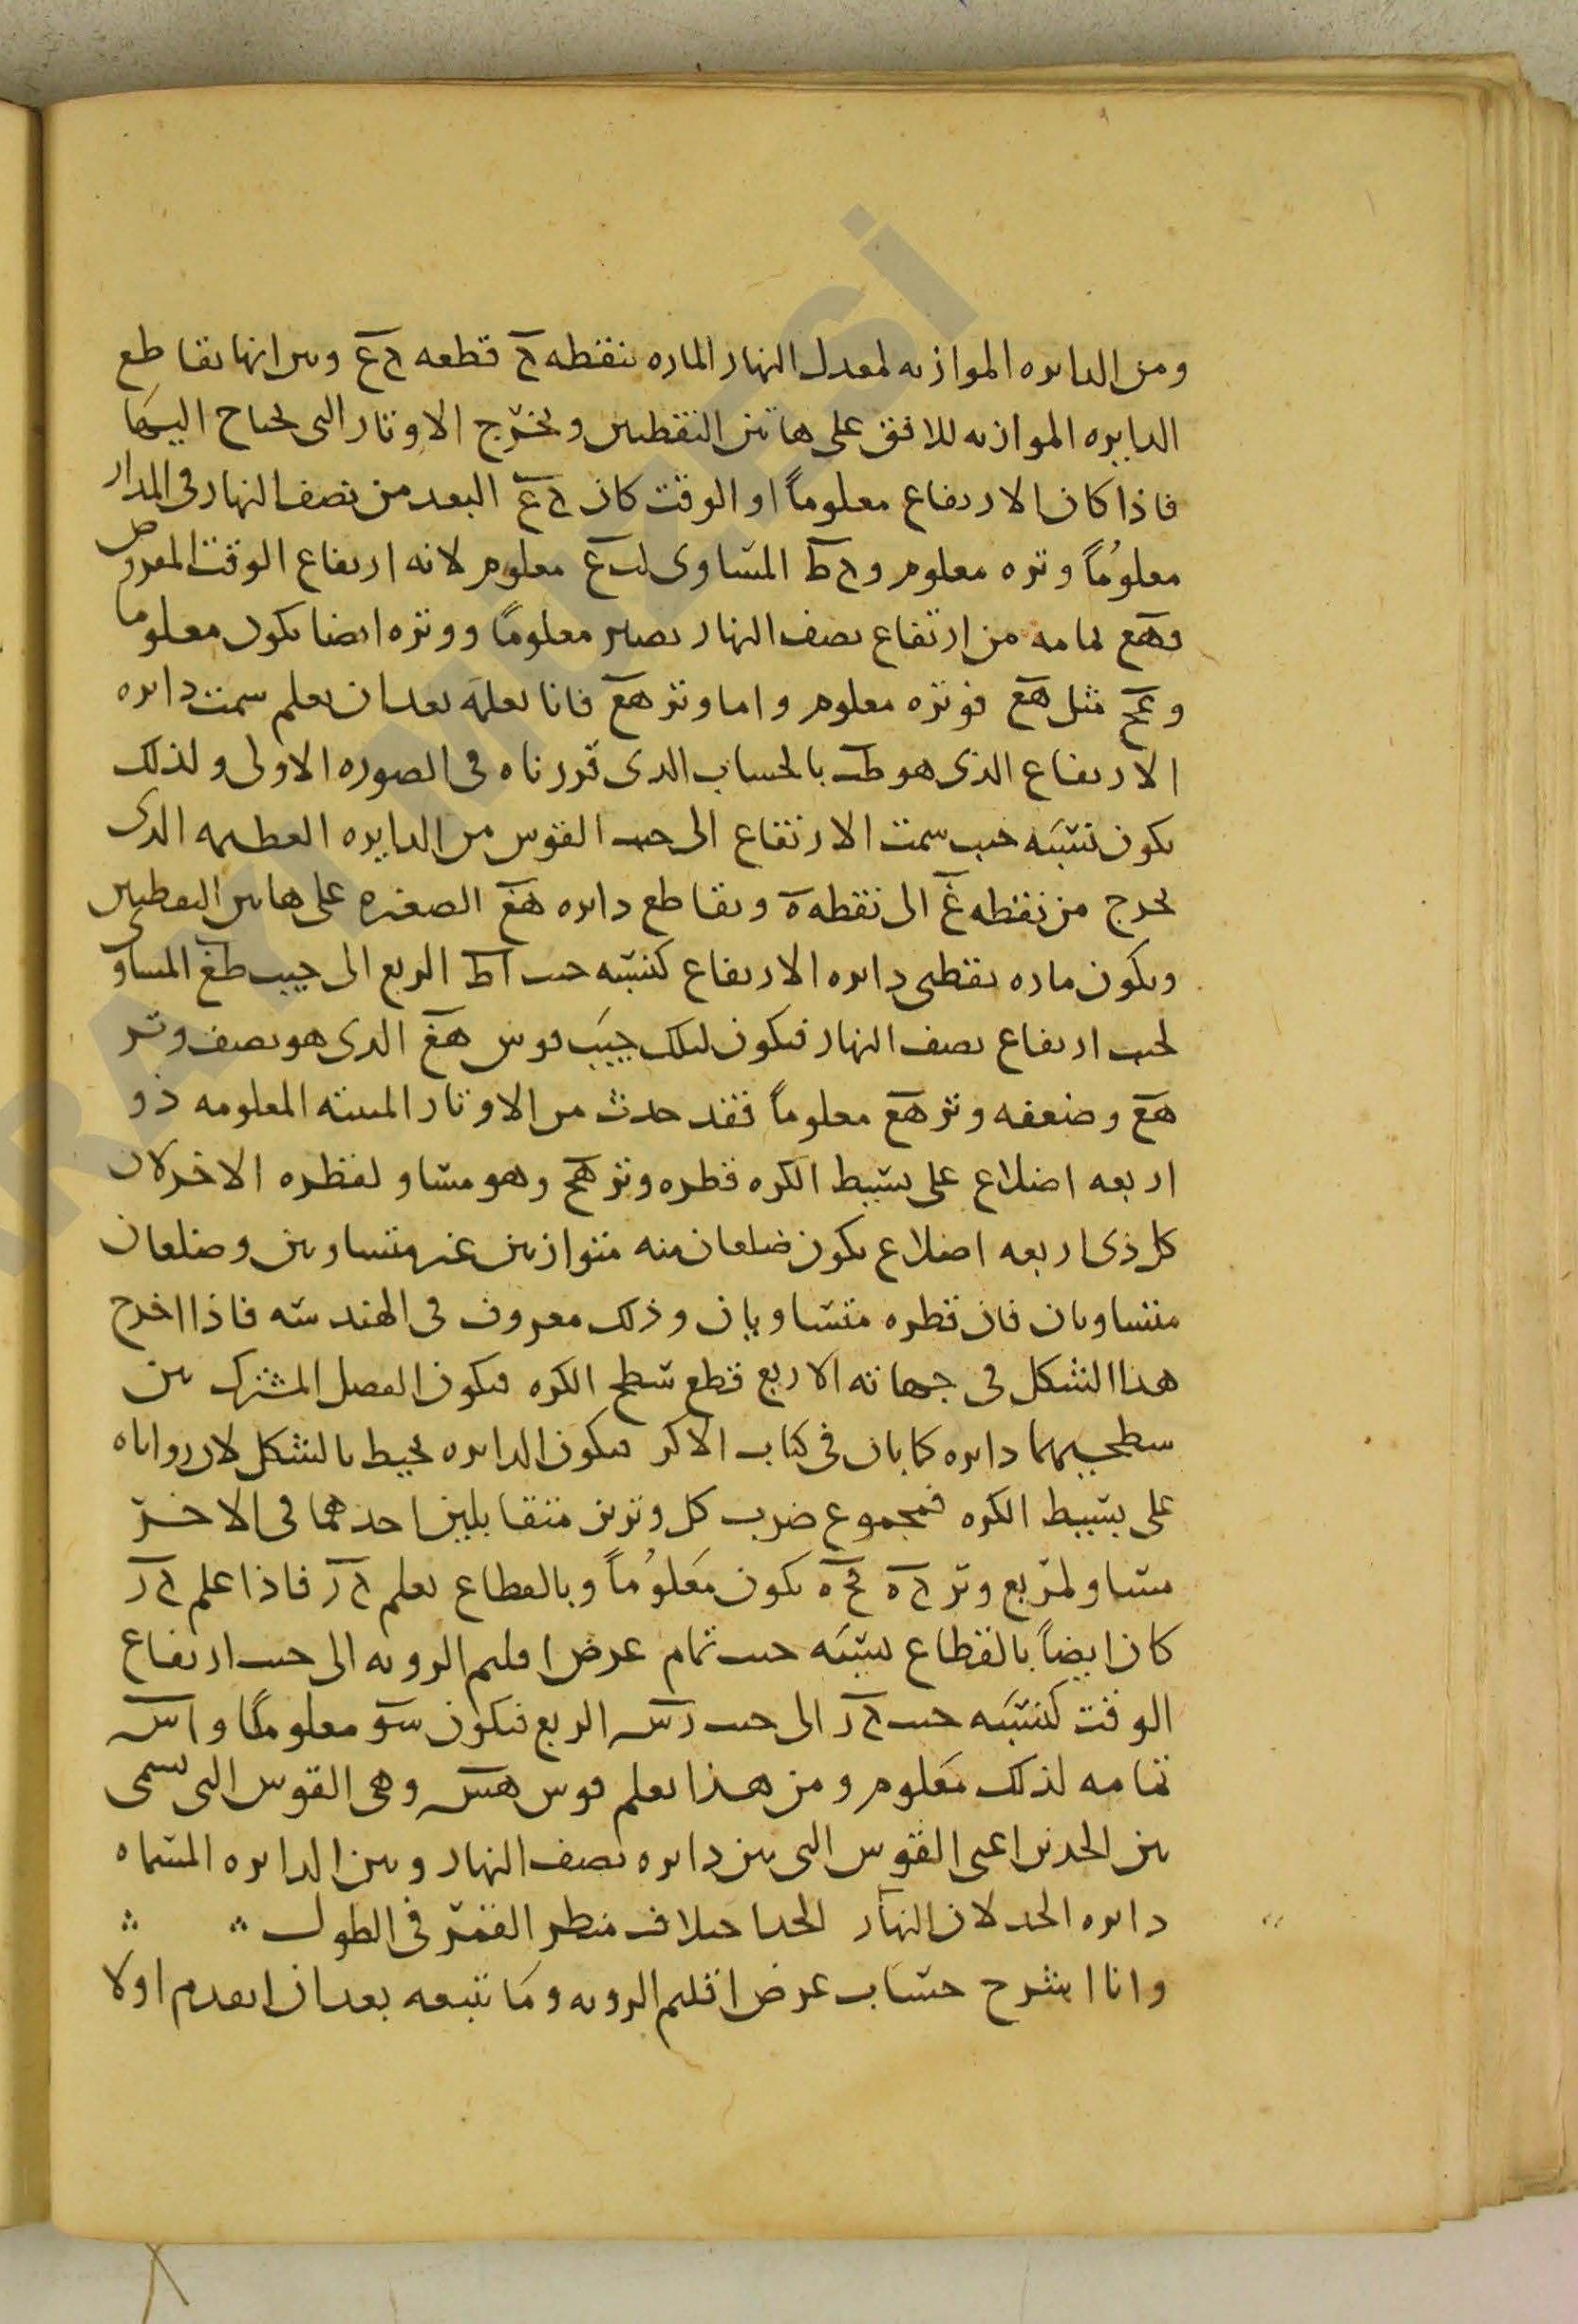 ومن الدايره الموازيه لمعدل النهار الماره بنقطه ح قطعه ح ع وبين انها تقاطع
الدايره الموازيه للافق على هاتين النقطتين ونخرج الاوتار التى نحتاج اليها
فاذا كان الارتفاع معلوماً او الوقت كان ح ع البعد من نصف النهار فى المدار
معلوُماً وتره معلوم و ح ط المساوى لـ ع معلوم لانه ارتفاع الوقت المفروض
فهع تمامه من ارتفاع نصف النهار يصير معلوماً ووتره ايضا يكون معلوما
و مثل هع فوتره معلوم واما وتر هع فانا نعلمه بعد ان نعلم سمت دايره
الارتفاع الذى هو طـ بالحساب الذى قررناه فى الصوره الاولى ولذلك
يكون نسبَه جيب سمت الارتفاع الى جيب القوس من الدايره العظيمه الذى
تخرج من نقطه غ الى نقطه ه وتقاطع دايره هع الصغيره على هاتين النقطتين
ويكون ماره بقطبى دايره الارتفاع كنسبه جيب اط الربع الى جيب طغ المساوى
لجيب ارتفاع نصف النهار فيكون لذلك جيَب قوس هغ الذى هو نصف وتر
هع وضعفه وتر هع معلوماً فقد حدث من الاوتار المبينه المعلومه ذو
اربعه اضلاع على بسيط الكره قطره وتر هح وهو مساو لقطره الاخر لان
كل ذى اربعه اضلاع يكون ضلعان منه متوازيين غير متساويين وضلعان
متساويان فان قطره متساويان وذلك معروف فى الهندسه فاذا اخرج
هذا الشكل فى جهاته الاربع قطع سطح الكره فيكون الفصل المشترك بين
سطحيهما دايره كما بان فى كتاب الاكر فيكون الدايره تحيط بالشكل لان زواياه
على بسيط الكره فمجموع ضرب كل وترين متقابلين احدهما فى الاخر
مساو لمربع وتر ح ه فح ه يكون معَلوُماً وبالقطاع نعلم ح ر فاذا علم ح ر
كان ايضاً بالقطاع نسبَه جيب تمام عرض اقليم الرويه الى جيب ارتفاع
الوقت كنسبَه جيب ح ر الى جيب رس الربع فيكون سو معلوماً واس
تمامه لذلك معَلوم ومن هذا نعلم قوس هس وهى القوس التى تسمى
بين الحدين اعنى القوس التى بين دايره نصف النهار وبين الدايره المسماه
دايره الحد لان النهار اختلاف منظر القمر فى الطول
وانا اشرح حساب عرض اقليم الرويه وما تتبعه بعد ان اقدم اولا